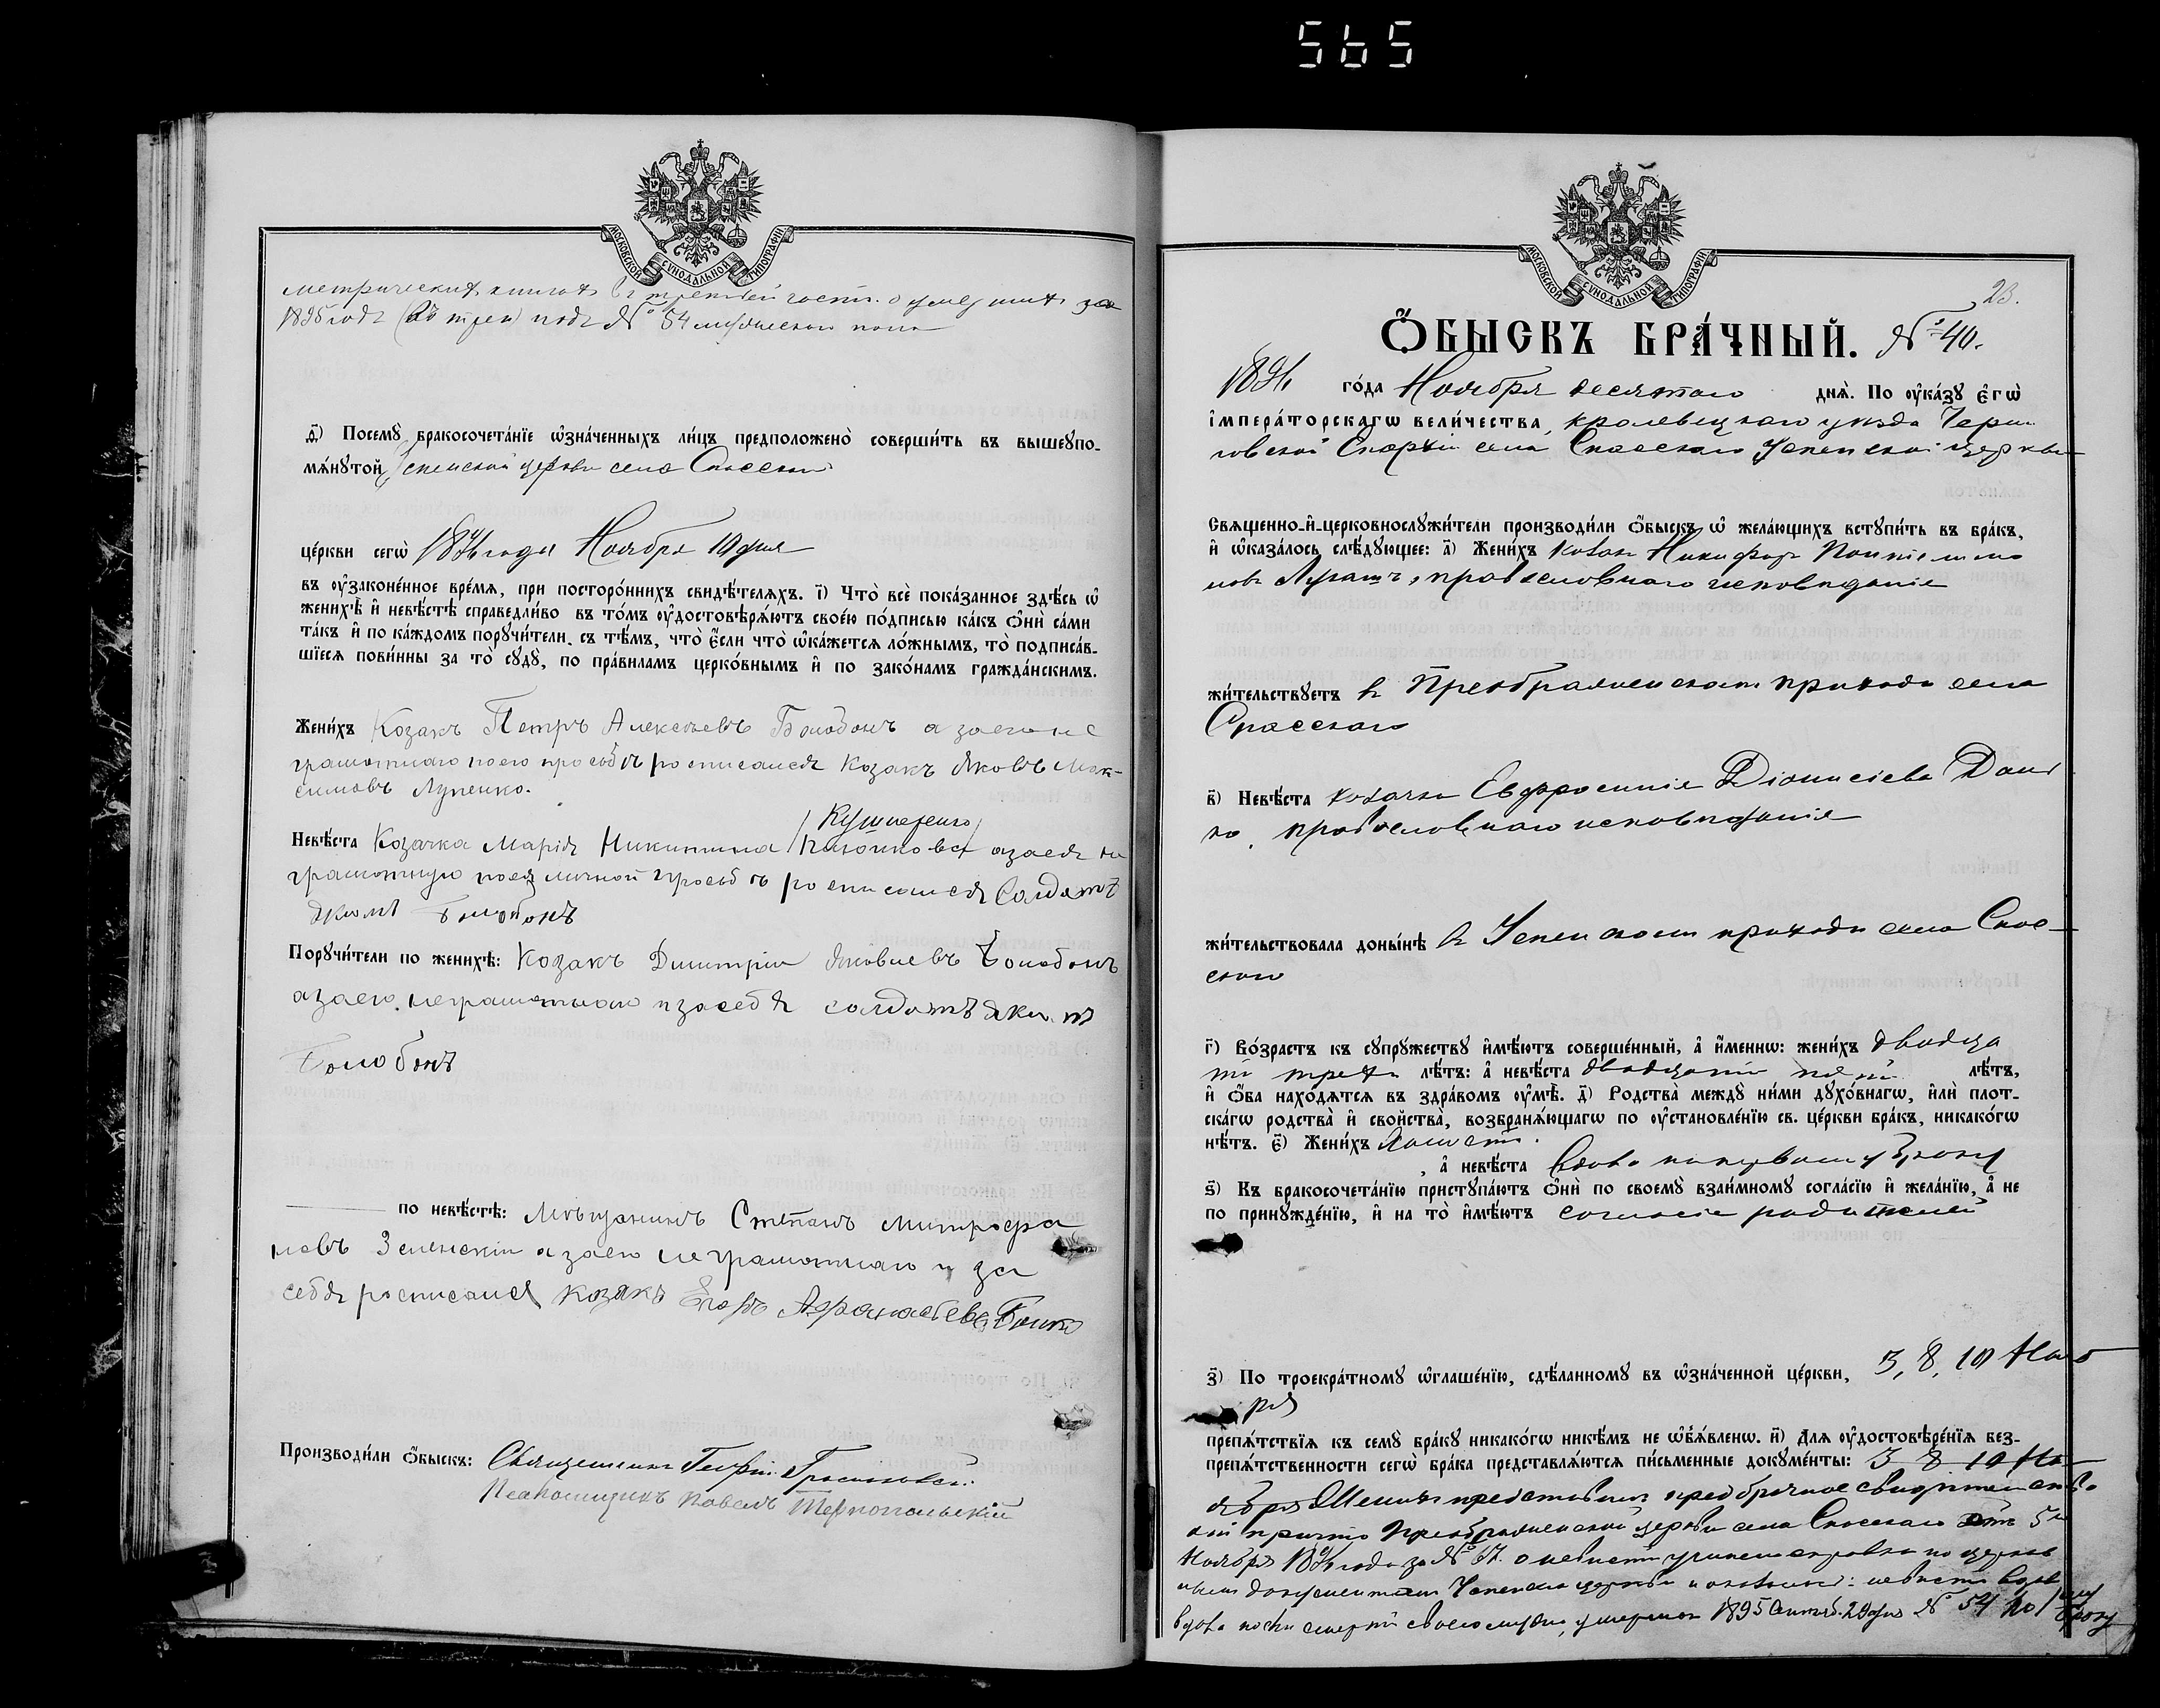 565
МОСКОВСКОЙ СѴНОДАЛЬНОЙ ТИПОГРАФІИ
метрическихъ книгахъ въ третьей части о умершихъ за
1895 годъ подъ № 54 мужескаго пола
ѳ҃) Посемꙋ̀ бракосочета́нїе ѡ҆зна́ченныхъ ли́цъ предположено̀ соверши́ть въ вышеꙋпо-
мѧ́нꙋтой Успенской церкви села Спасскаго
це́ркви сегѡ̀ 1896 года Ноября 10 дня
въ ᲂу҆законе́нное вре́мѧ, при посторо́ннихъ свидѣ́телѧхъ. і҃) Что̀ всѐ пока́занное здѣ́сь ѡ҆
женихѣ̀ и҆ невѣ́стѣ справедли́во въ то́мъ ᲂу҆достовѣрѧ́ютъ свое́ю по́дписью ка́къ ѻ҆нѝ са́ми
та́къ и҆ по ка́ждомъ порꙋчи́тели, съ тѣ́мъ, что̀ є҆́сли что̀ ѡ҆ка́жетсѧ ло́жнымъ, то̀ подписа́в-
шїесѧ пови́нны за то̀ сꙋдꙋ̀, по пра́виламъ церко́внымъ и҆ по зако́намъ гражда́нскимъ.
Жени́хъ Козакъ Петръ Алексѣевъ Болобонъ а за его не
грамотнаго по его прозьбѣ росписался Козакъ Яковъ Мак-
симовъ Лупенко.
Кушнеренко
Невѣ́ста Козачка Марія Никитина а за ея не
грамотную по ея личной прозьбѣ росписался Солдатъ
Якимъ Болобонъ
Порꙋчи́тели по женихѣ̀: Козакъ Димитрій Яковлевъ Болобонъ
а за его неграмотнаго и за себя солдатъ Якимъ
Болобонъ
по невѣ́стѣ: Мѣщанинъ Степанъ Митрофа
новъ Зеленскій а за его неграмотнаго и за
себя росписался козакъ Егоръ Афанасьевъ Бойко
Производи́ли ѻ҆́быскъ: Священникъ Георгій
Псаломщикъ Павелъ Тернопольскій
МОСКОВСКОЙ СѴНОДАЛЬНОЙ ТИПОГРАФІИ
23.
Ѻ҆́БЫСКЪ БРА́ЧНЫЙ. № 40.
1896 го́да Ноября десятаго днѧ̀. По ᲂу҆ка́зꙋ є҆гѡ̀
і҆мпера́торскагѡ вели́чества, кролевецкаго уѣзда Черни
говской Епархіи села Спасскаго Успенской церкви
Свѧщенно-и҆-церковнослꙋжи́тели производи́ли ѻ҆́быскъ ѡ҆ жела́ющихъ встꙋпи́ть въ бра́къ,
и҆ ѡ҆каза́лось слѣ́дꙋющее: а҃) Жени́хъ козакъ Никифоръ
новъ православнаго исповѣданія
жи́тельствꙋетъ въ Преображенскомъ приходѣ села
Спасскаго
в҃) Невѣ́ста козачка Евфросинія Діонисіева
ко, православнаго исповѣданія
жи́тельствовала доны́нѣ въ Успенскомъ приходѣ села Спас-
скаго
г҃) Во́зрастъ къ сꙋпрꙋ́жествꙋ и҆мѣ́ютъ соверше́нный, а҆ и҆́меннѡ: жени́хъ двадца
ти трехъ лѣ́тъ: а҆ невѣ́ста двадцати пяти лѣ́тъ,
и҆ ѻ҆́ба нахо́дѧтсѧ въ здра́вомъ ᲂу҆мѣ̀. д҃) Родства̀ междꙋ̀ ни́ми дꙋхо́внагѡ, и҆лѝ плот-
ска́гѡ родства̀ и҆ сво́йства, возбранѧ́ющагѡ по ᲂу҆становле́нїю св. це́ркви бра́къ, никако́гѡ
нѣ́тъ. є҃) Жени́хъ холостъ.
, а҆ невѣ́ста вдова по первому браку
ѕ҃) Къ бракосочета́нїю пристꙋпа́ютъ ѻ҆нѝ по своемꙋ̀ взаи́мномꙋ согла́сїю и҆ жела́нїю, а҆ не
по принꙋжде́нїю, и҆ на то̀ и҆мѣ́ютъ согласіе родителей
з҃) По троекра́тномꙋ ѡ҆глаше́нїю, сдѣ́ланномꙋ въ ѡ҆зна́ченной це́ркви, 3, 8, 10 Нояб
ря
препѧ́тствїѧ къ семꙋ̀ бра́кꙋ никако́гѡ никѣ́мъ не ѡ҆б̾ѧ́вленѡ. и҃) Длѧ ᲂу҆достовѣре́нїѧ без-
препѧ́тственности сегѡ̀ бра́ка представлѧ́ютсѧ пи́сьменные докꙋме́нты: 3 8 10 Но
ября Женихъ представилъ предбрачное свидѣтельство
отъ причта Преображенской церкви села Спасскаго отъ 5го
Ноября 1896 года за № о невѣстѣ учинена справка по церков
нымъ документамъ Успенской церкви и оказалось: невѣста
вдова послѣ смерти своего мужа, умершаго 1895 Сентяб. 29 дня № 54 по 1му браку